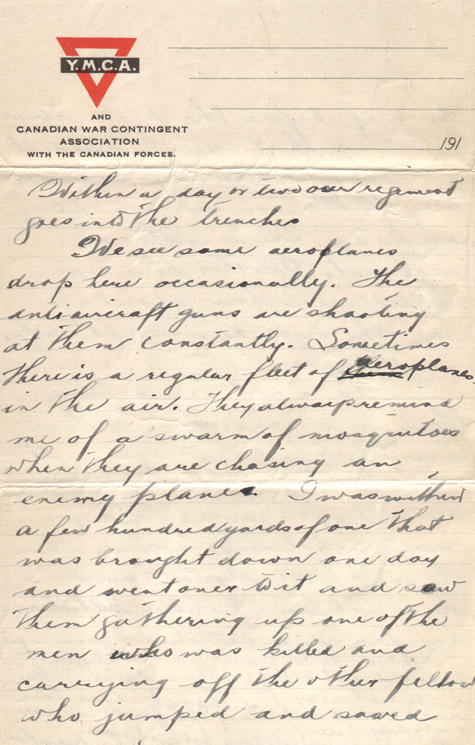 Y.M.C.A.
AND
CANADIAN WAR CONTINGENT
ASSOCIATION
WITH THE CANADIAN FORCES.
191
Within a day or two our regiment
goes into the trenches
We see some aeroplanes
drop here occasionally. The
antiaircraft guns are shooting
at them constantly. Sometimes
there is a regular fleet of aeroplanes
in the air. They always remind
me of a swarm of mosquitoes
when they are chasing an
enemy plane. I was within
a few hundred yards of one that
was brought down one day
and went over to it and saw
them gathering up one of the
men who was killed and
carrying off the other fellow
who jumped and saved